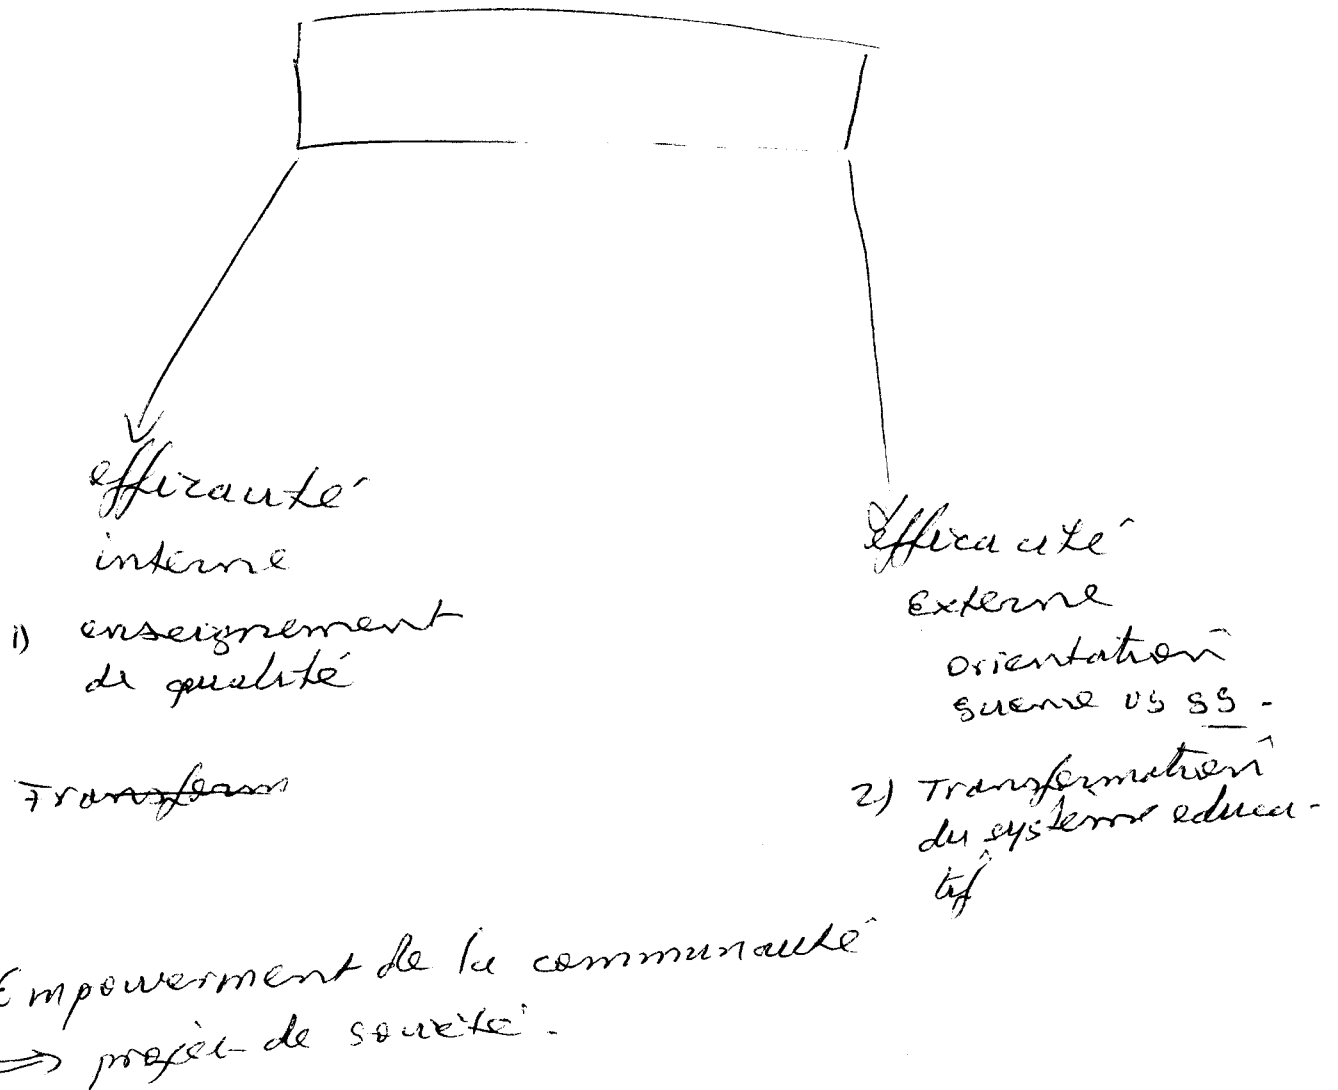 efficacité
interne
1) enseignement
de qualité
Transform
efficacité
Externe
orientation
science vs SS.
2) Transformation
du système educa-
tif
Empowerment de la communauté
=> projet de société.